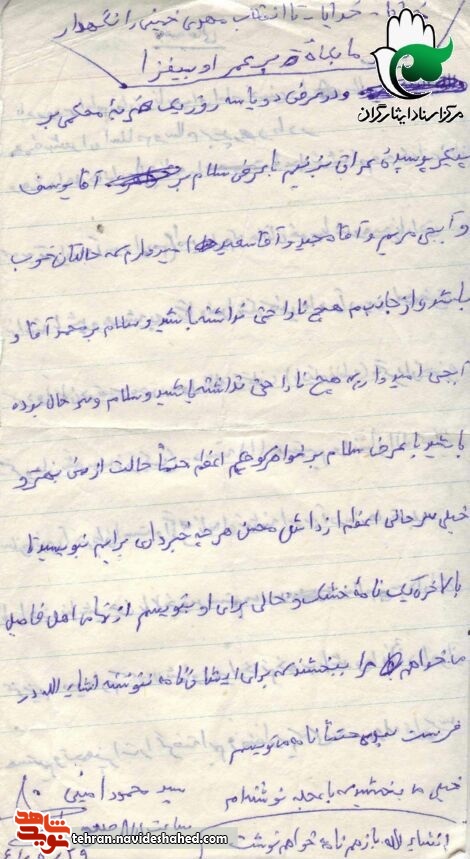 خدایا خدایا تا انقلاب مهدی خمینی را نگهدار
از عمر ما بکاه و بر عمر او بیفزا
مرکز اسناد ایثارگران
و در عرض دو یا سه روز یک ضربهٔ محکمی بر
پیکر پوسیدهٔ عراق بزنیم با عرض سلام بر آقا یوسف
و آبجی مریم و آقا مجید و آقا سعید امیدوارم که حالتان خوب
باشد و از جانب من هیچ ناراحتی نداشته باشید و سلام بر محمد آقا و
آبجی امیدوارم که هیچ ناراحتی نداشته باشید و سلام و سرحال بوده
باشید با عرض سلام بر خواهر کوچکم اعظم حتماً حالت از من بهتر و
خیلی سرحالی اعظم از داداش محسن هر چه خبر داری برایم بنویسید تا
بالاخره یک نامهٔ خشک و خالی برای او بنویسم از تمام اهل فامیل
ما خواهم مرا ببخشند که برای ایشان نامه ننوشته انشاء الله در
فرصت بعدی حتماً نامه می‌نویسم
خیلی ببخشید که با عجله نوشته‌ام سید محمود امینی
انشاء الله باز هم نامه خواهم نوشت
نوید شاهد
tehran.navideshahed.com